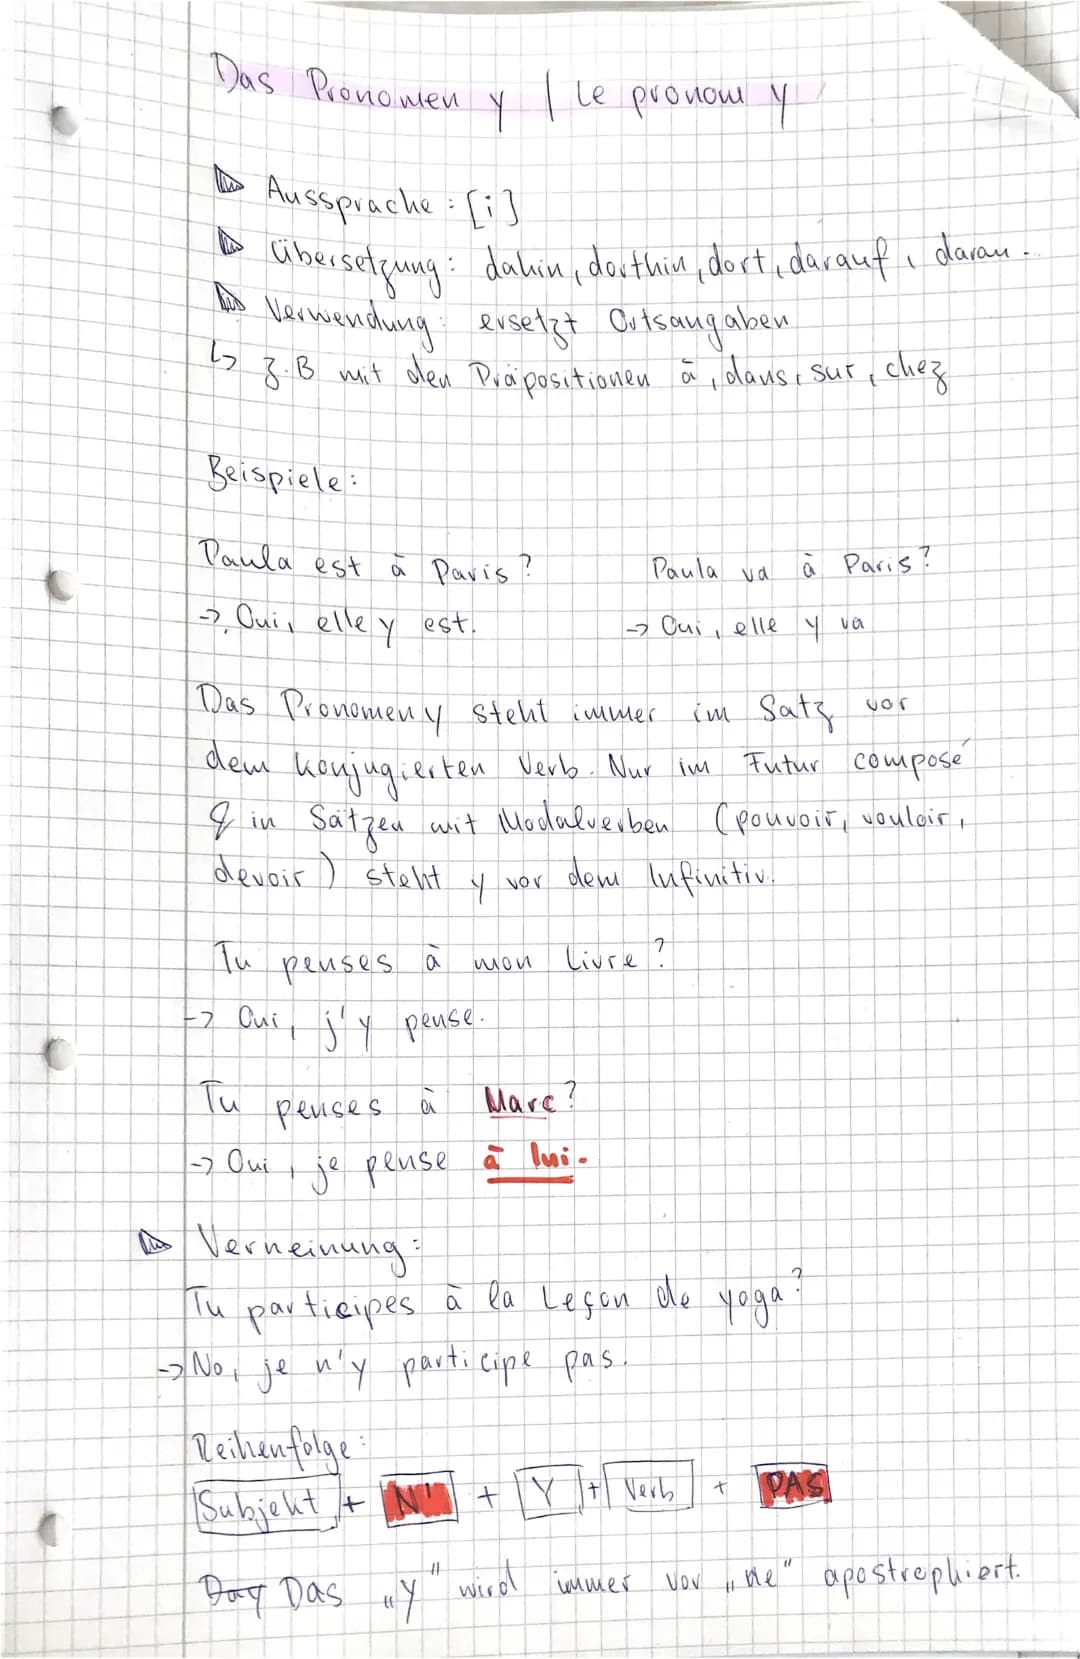 Das Pronomen y / Le pronom y
Aussprache: [i]
Übersetzung: dahin, dorthin, dort, darauf, daran...
Verwendung: ersetzt Ortsangaben
↳ z.B mit den Präpositionen à, dans, sur, chez
Beispiele:
Paula est à Paris?
→ Oui, elle y est.
Paula va à Paris?
→ Oui, elle y va
Das Pronomen y steht immer im Satz vor
dem konjugierten Verb. Nur im Futur composé
& in Sätzen mit Modalverben (pouvoir, vouloir,
devoir) steht y vor dem Infinitiv.
Tu penses à mon livre?
→ Oui, j'y pense.
Tu penses à Marc?
→ Oui, je pense à lui.
Verneinung:
Tu participes à la Leçon de yoga?
→ No, je n'y participe pas.
Reihenfolge:
Subjekt + N' + Y + Verb + PAS
Day Das „y" wird immer vor „ne" apostrophiert.